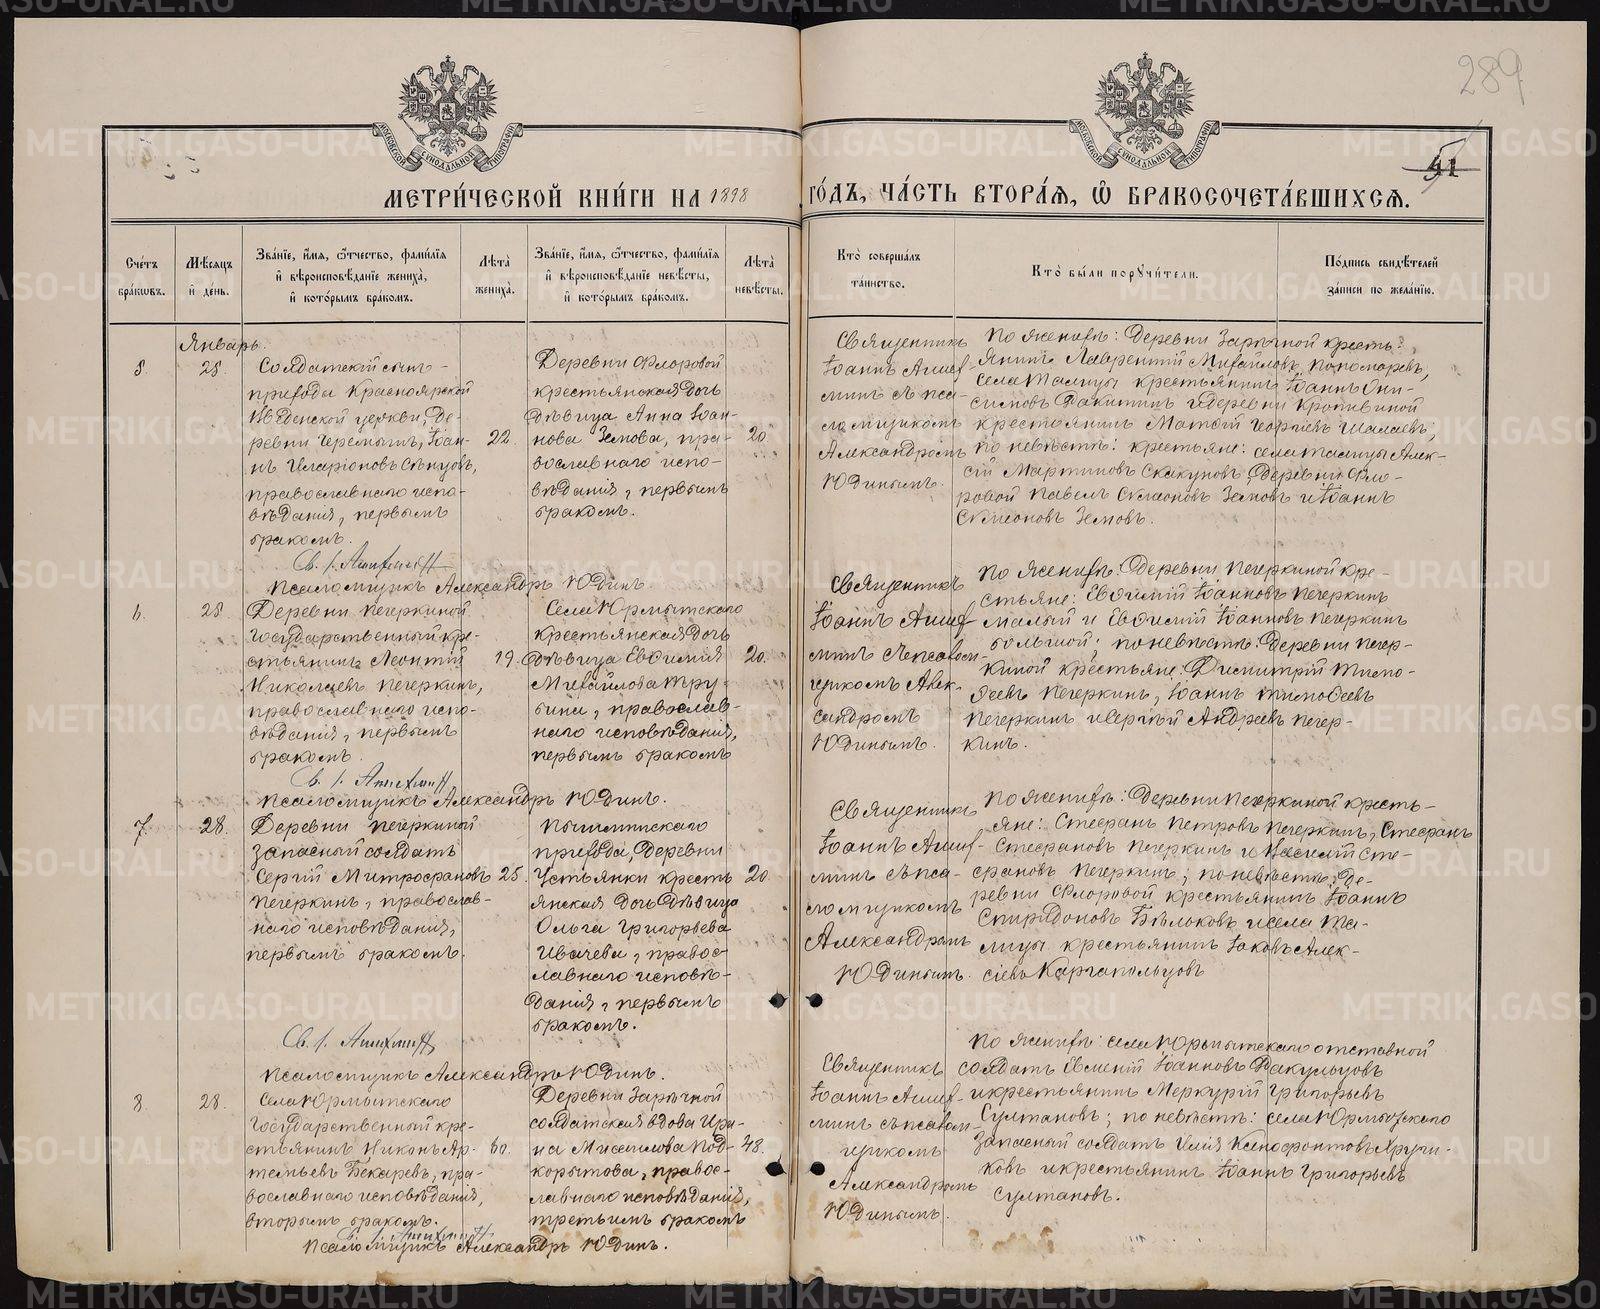 289
41
МОСКОВСКОЙ СѴНОДАЛЬНОЙ ТИПОГРАФІИ
МОСКОВСКОЙ СѴНОДАЛЬНОЙ ТИПОГРАФІИ
МЕТРИ́ЧЕСКОЙ КНИ́ГИ НА 1898 ГО́ДЪ, ЧА́СТЬ ВТОРА́Я, Ѽ БРАКОСОЧЕТА́ВШИХСЯ.
Сче́тъ
бра́кѡвъ.
Мѣ́сяцъ
и҆ де́нь.
Зва́нїе, и҆́мя, ѻ҆́тчество, фами́лїя
и҆ вѣроисповѣ́данїе жениха̀,
и҆ кото́рымъ бра́комъ.
Лѣ́та
жениха̀.
Зва́нїе, и҆́мя, ѻ҆́тчество, фами́лїя
и҆ вѣроисповѣ́данїе невѣ́сты,
и҆ кото́рымъ бра́комъ.
Лѣ́та
невѣ́сты.
Кто̀ соверша́лъ
та́инство.
Кто̀ бы́ли порꙋчи́тели.
По́дпись свидѣ́телей
за́писи по жела́нїю.
Январь.
5
25.
Солдатскій сынъ
прихода Красноярской
Введенской церкви, де-
ревни Черемышъ, Іоан-
нъ Иларіоновъ
православнаго испо-
вѣданія, первымъ
бракомъ.
22.
Деревни Флоровой
крестьянская дочь
дѣвица Анна Іоан-
нова Земова, пра-
вославнаго испо-
вѣданія, первымъ
бракомъ.
20.
Священникъ
Іоаннъ
съ пса-
ломщикомъ
Александромъ
Юдинымъ.
По женихѣ: деревни Зарѣчной кресть-
янинъ Лаврентій Михайловъ Пономаревъ,
села Талицы крестьянинъ Іоаннъ Они-
симовъ и деревни
крестьянинъ Матѳій Георгіевъ Шалаевъ;
по невѣстѣ: крестьяне: села Талицы Алек-
сій Мартиновъ Скакуновъ, деревни Фло-
ровой Павелъ Симеоновъ Земовъ и Іоаннъ
Симеоновъ Земовъ.
Св. І.
Псаломщикъ Александръ Юдинъ
6.
25.
Деревни Печеркиной
государственный кре-
стьянинъ Леонтій
Николаевъ Печеркинъ,
православнаго испо-
вѣданія, первымъ
бракомъ.
19.
Села Юрмытскаго
крестьянская дочь
дѣвица Евдокимія
Михайлова Тру-
бина, православ-
наго исповѣданія,
первымъ бракомъ
20.
Священникъ
Іоаннъ
съ псалом-
щикомъ Алек-
сандромъ
Юдинымъ.
По женихѣ: деревни Печеркиной кре-
стьяне: Евдокимій Іоанновъ Печеркинъ
малый и Евдокимій Іоанновъ Печеркинъ
большой; по невѣстѣ: деревни Печер-
киной крестьяне: Димитрій Тимо-
ѳеевъ Печеркинъ, Іоаннъ Тимоѳеевъ
Печеркинъ и Сергѣй Андреевъ Печер-
кинъ.
Св. І.
Псаломщикъ Александръ Юдинъ.
7.
28.
Деревни Печеркиной
запасный солдатъ
Сергій Митрофановъ
Печеркинъ, православ-
наго исповѣданія,
первымъ бракомъ.
25.
Пышминскаго
прихода, деревни
Устьянки кресть-
янская дочь дѣвица
Ольга Григорьева
Ивачева, правос-
лавнаго исповѣ-
данія, первымъ
бракомъ.
20
Священникъ
Іоаннъ
съ пса-
ломщикомъ
Александромъ
Юдинымъ.
По женихѣ: деревни Печеркиной кресть-
яне: Стефанъ Петровъ Печеркинъ, Стефанъ
Стефановъ Печеркинъ и Василій Сте-
фановъ Печеркинъ; по невѣстѣ: де-
ревни Флоровой крестьянинъ Іоаннъ
Спиридоновъ Бѣлоковъ и села Та-
лицы крестьянинъ Іаковъ Алек-
сіевъ Каргапольцовъ
Св. І.
Псаломщикъ Александръ Юдинъ.
8.
28.
Села Юрмытскаго
государственный кре-
стьянинъ Никонъ Ар-
темьевъ Бекаревъ, пра-
вославнаго исповѣданія,
вторымъ бракомъ.
60.
Деревни Зарѣчной
солдатская вдова Ири-
на Мисаилова Под-
корытова, правос-
лавнаго исповѣданія,
третьимъ бракомъ
48.
Священникъ
Іоаннъ
съ псалом-
щикомъ
Александромъ
Юдинымъ.
По женихѣ: села Юрмытскаго отставной
солдатъ Евменій Іоанновъ Вакульцовъ
и крестьянинъ Меркурій Григорьевъ
Султановъ; по невѣстѣ: села Юрмытскаго
запасный солдатъ Илія Ксенофонтовъ
и крестьянинъ Іоаннъ Григорьевъ
Султановъ.
Псаломщикъ Александръ Юдинъ.
METRIKI.GASO-URAL.RU